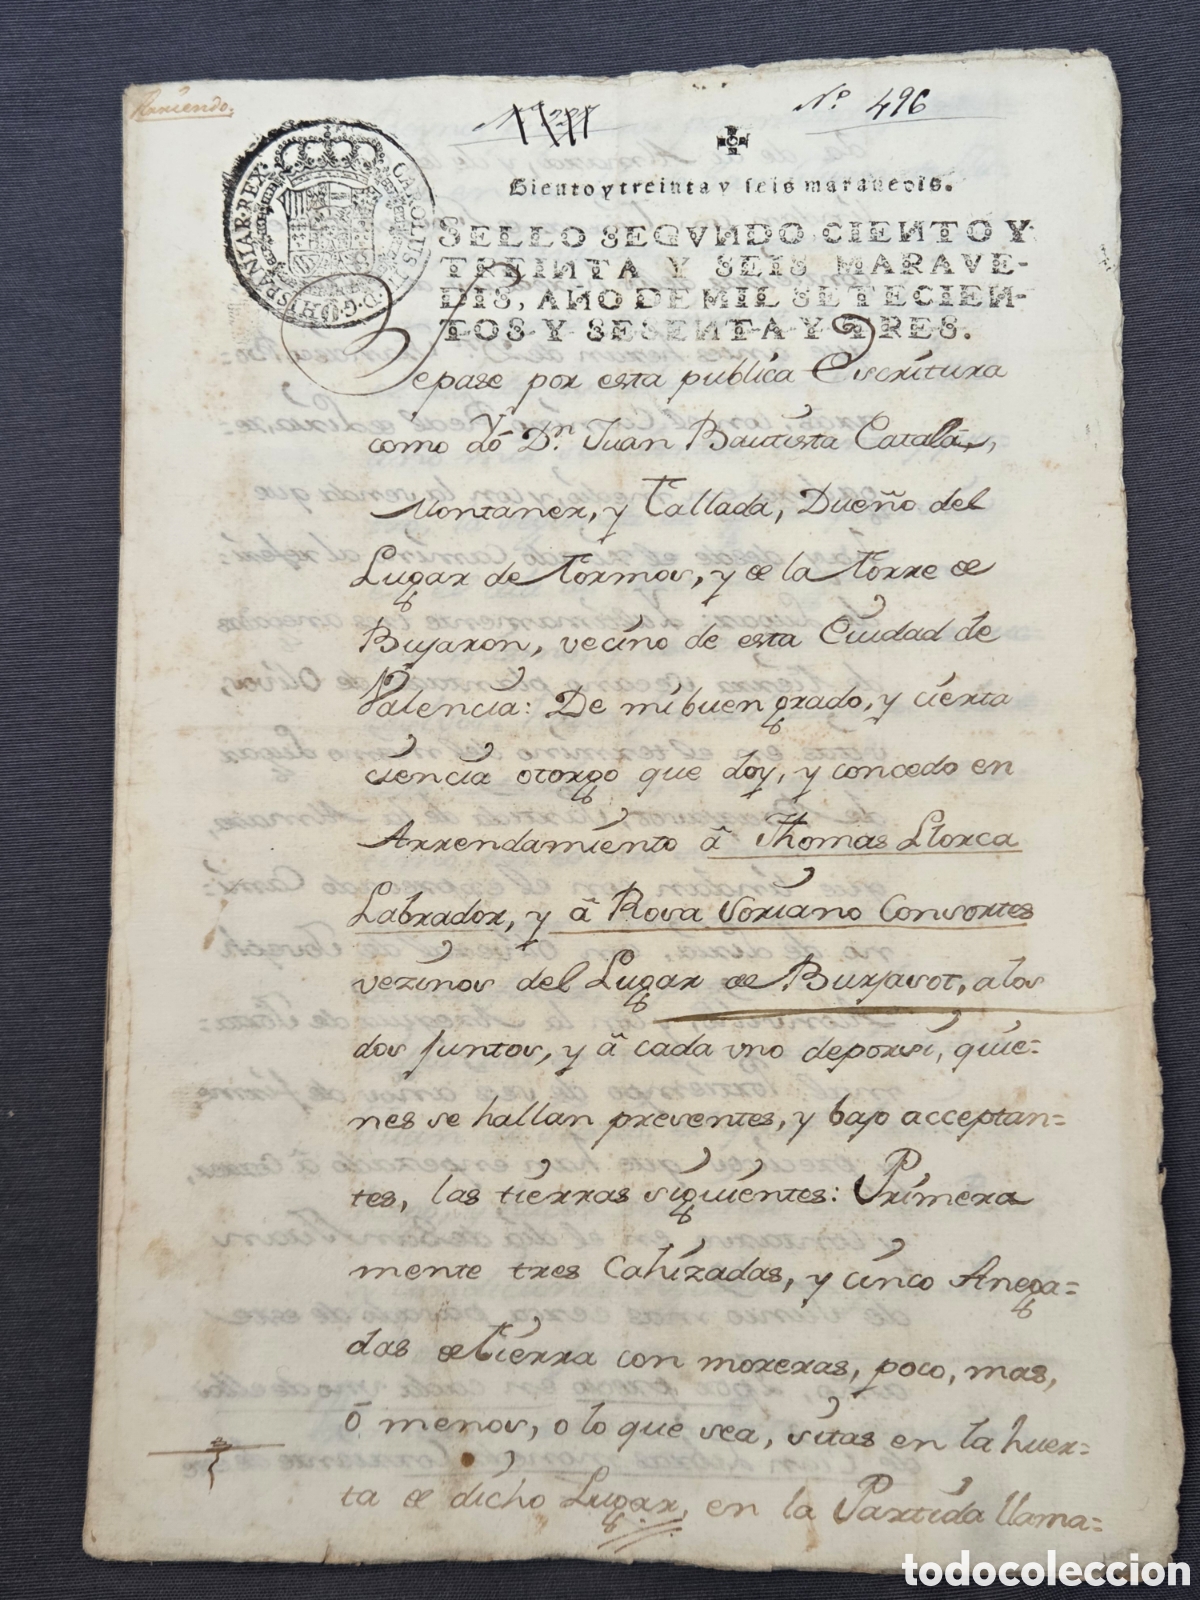 Arriendo.
Nº 496
CAROLUS III D G HISPANIAR REX
Ciento y treinta y seis maravedis.
SELLO SEGVNDO CIENTO Y
TREINTA Y SEIS MARAVE-
DIS, AÑO DE MIL SETECIEN-
TOS Y SESENTA Y TRES.
Sepase por esta publica Escritura
como Yo Dn. Juan Bautista Catalá,
Montaner, y Tallada, Dueño del
Lugar de Tormos, y de la Torre de
Bujaron, vecino de esta Ciudad de
Valencia: De mi buen grado, y cierta
ciencia otorgo que doy, y concedo en
Arrendamiento â Thomas Llorca
Labrador, y â Rosa Soriano Consortes
vezinos del Lugar de Burjasot, a los
dos juntos, y â cada uno deporsi, quie=
nes se hallan presentes, y bajo acceptan=
tes, las tierras siguientes: Primera
mente tres Cahizadas, y cinco Anega=
das de tierra con moreras, poco, mas,
ó menos, o lo que sea, sitas en la huer=
ta de dicho Lugar, en la Partida llama=
todocoleccion